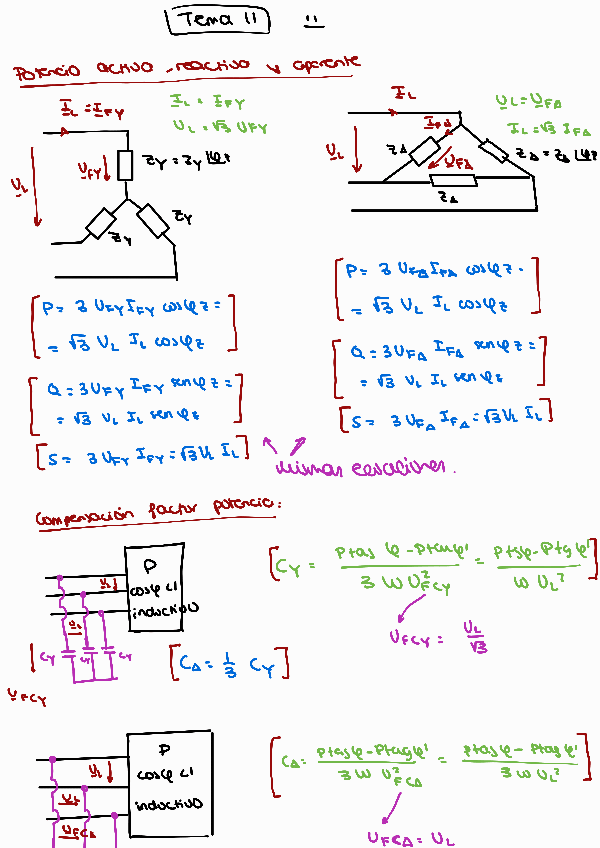 Tema 11 11
Potencia activa, reactiva y aparente
I_L = I_FY
I_L = I_FY
U_L = √3 U_FY
U_L
U_FY
Z_Y = Z_Y |φz
Z_Y
Z_Y
I_L
U_L = U_FΔ
I_L = √3 I_FΔ
I_FΔ
U_L
Z_Δ
U_FΔ
Z_Δ = Z_Δ |φz
Z_Δ
[P = 3 U_FY I_FY cosφz =
= √3 U_L I_L cosφz]
[Q = 3 U_FY I_FY senφz =
= √3 U_L I_L senφz]
[S = 3 U_FY I_FY = √3 U_L I_L]
[P = 3 U_FΔ I_FΔ cosφz =
= √3 U_L I_L cosφz]
[Q = 3 U_FΔ I_FΔ senφz =
= √3 U_L I_L senφz]
[S = 3 U_FΔ I_FΔ = √3 U_L I_L]
mismas ecuaciones.
Compensación factor potencia:
P
cosφ<1
inductivo
U_L
U_L
C_Y C_Y C_Y
U_FCY
[C_Y = (P tagφ - P tanφ')/(3 ω U²_FCY) = (P tgφ - P tgφ')/(ω U_L²)]
U_FCY = U_L/√3
[C_Δ = 1/3 C_Y]
P
cosφ<1
inductivo
U_L
U_L
U_FCΔ
[C_Δ = (P tagφ - P tagφ')/(3 ω U²_FCΔ) = (P tagφ - P tagφ')/(3 ω U_L²)]
U_FCΔ = U_L